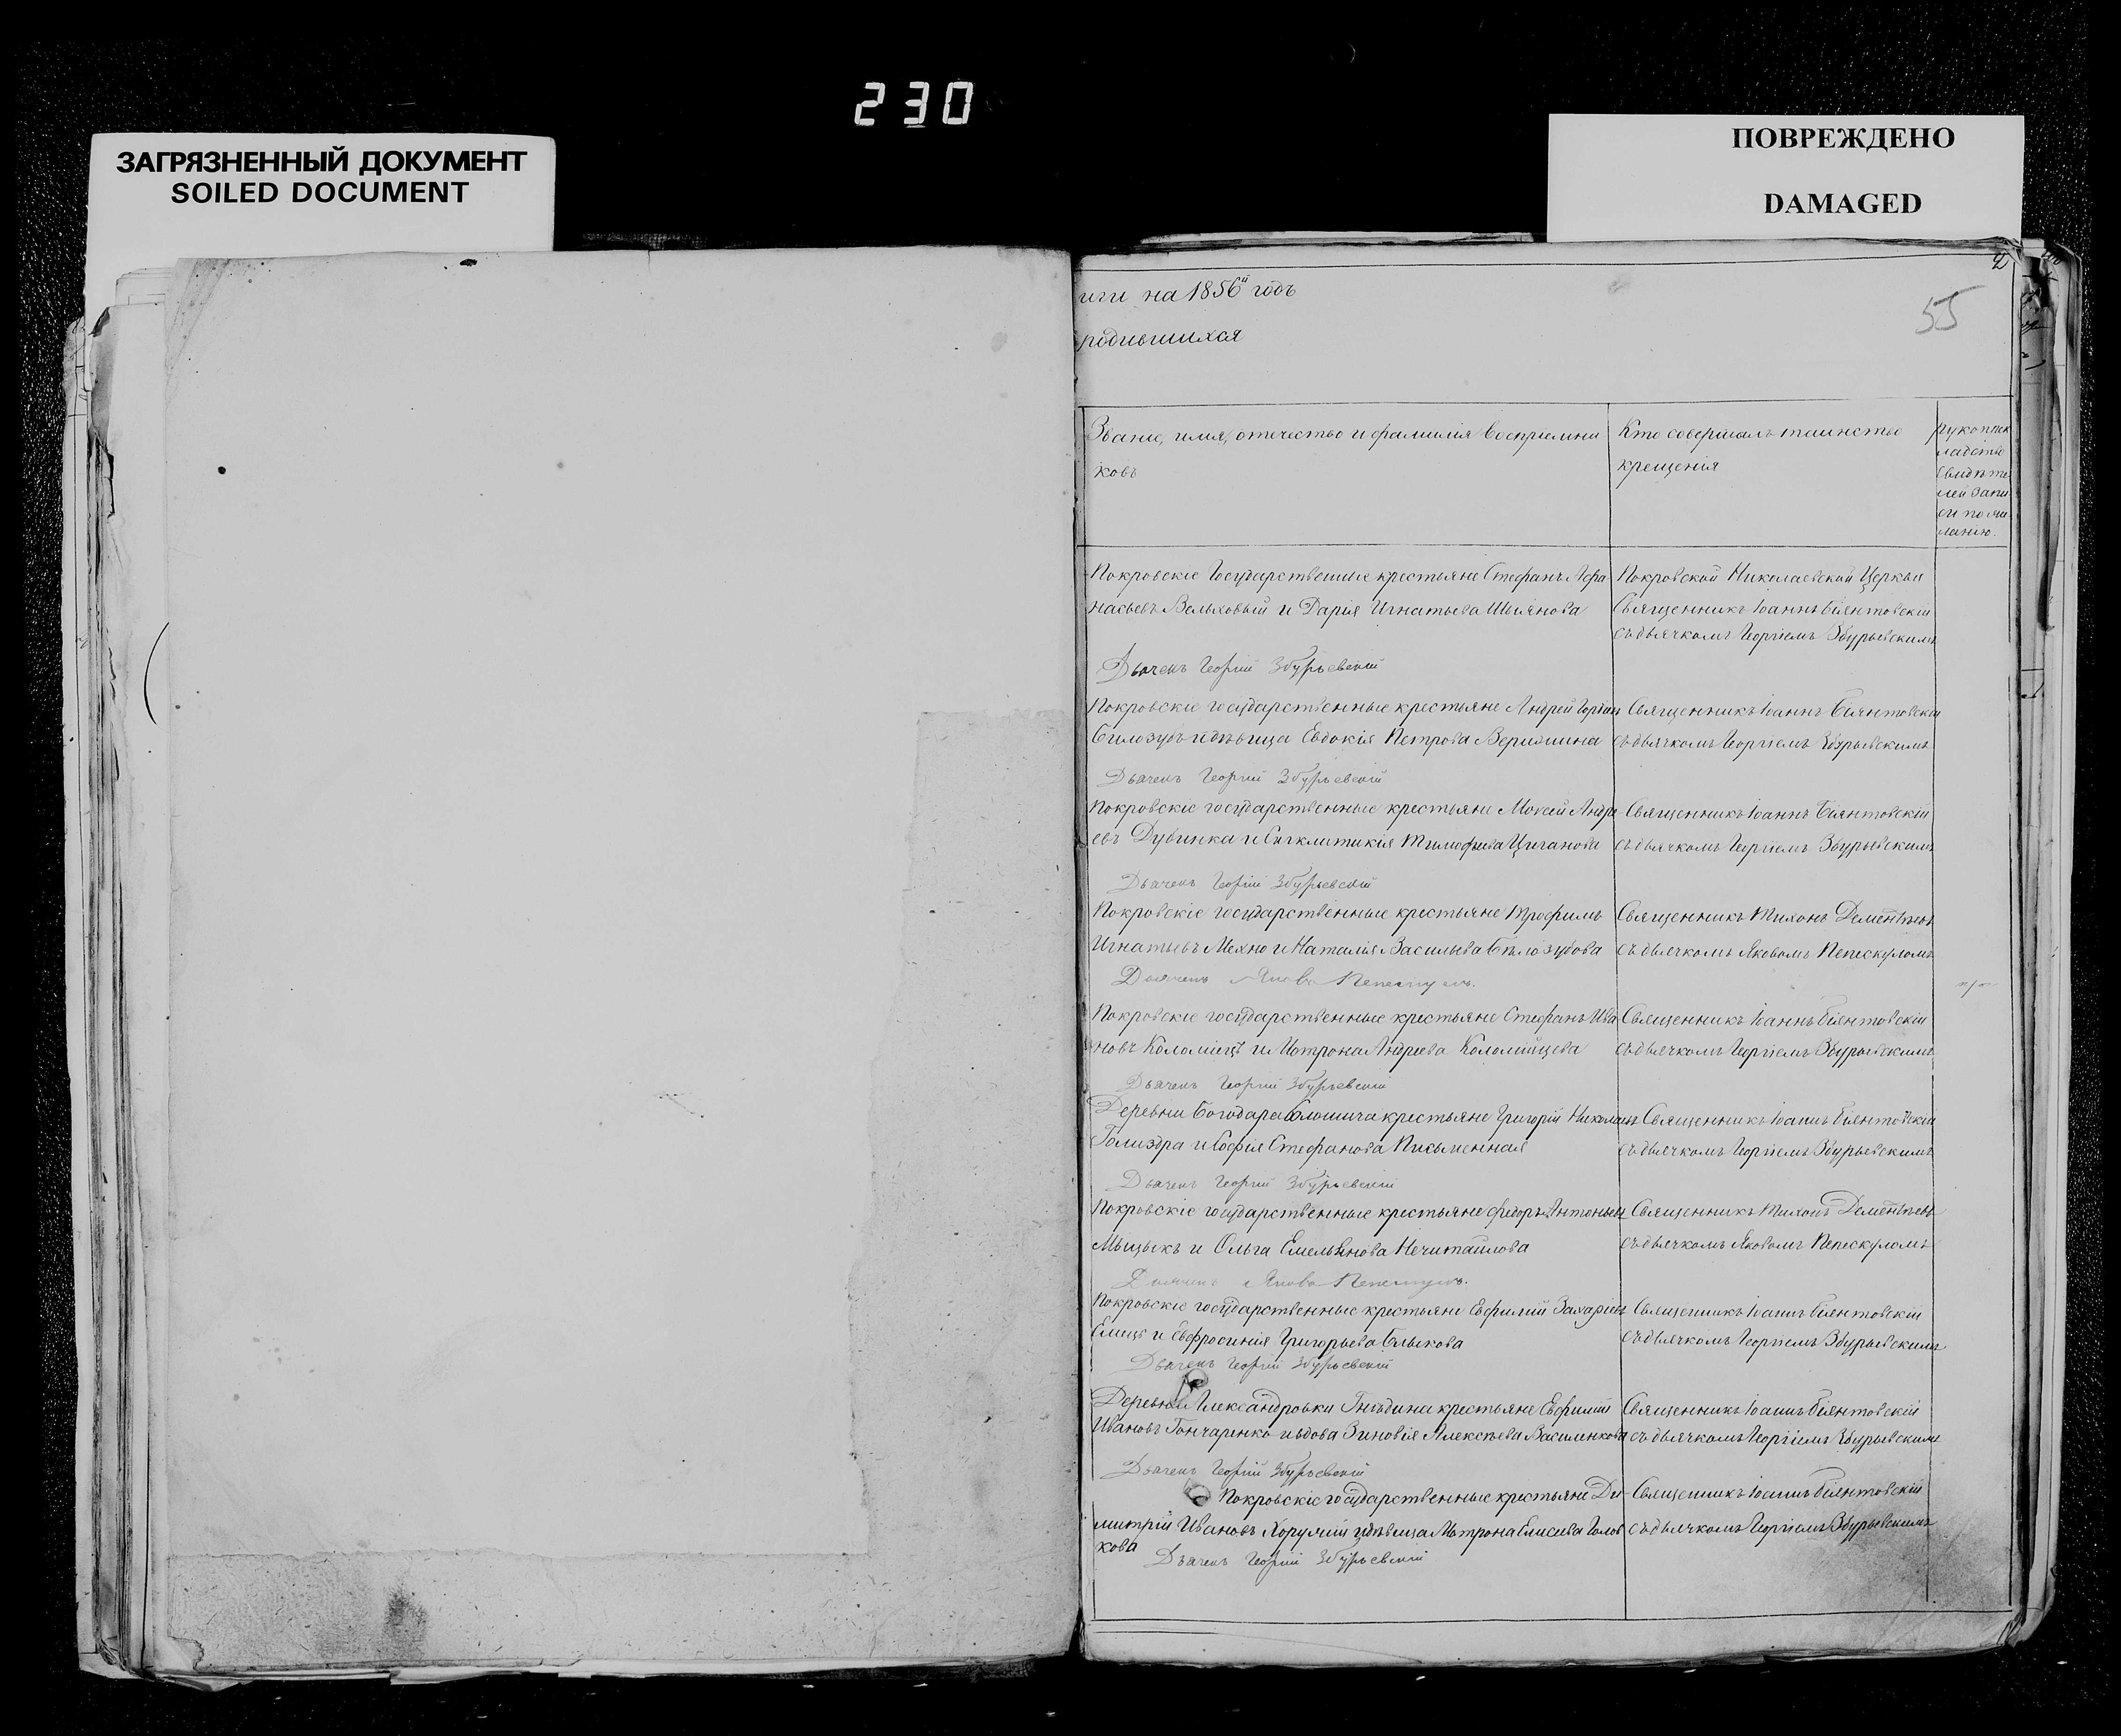 230
ЗАГРЯЗНЕННЫЙ ДОКУМЕНТ
SOILED DOCUMENT
ПОВРЕЖДЕНО
DAMAGED
2
55
иги на 1856й годъ
родившихся
Званіе, имя, отечество и фамилія воспріемни
ковъ
Кто совершалъ таинство
крещенія
рукопри
кладство
свидѣте
лей запи
си по же
ланію.
Покровскіе Государственные крестьяне Стефанъ Афа
насьевъ Вельховый и Дарія Игнатьева
Покровской Николаевской Церкви
Священникъ Іоаннъ Біянтовскій
съ дьячкомъ Георгіемъ Збурьевскимъ
Дьячекъ Георгій Збурьевскій
Покровскіе государственные крестьяне Андрей
Билозубъ и дѣвица Евдокія Петрова
Священникъ Іоаннъ Біянтовскій
съ дьячкомъ Георгіемъ Збурьевскимъ
Дьячекъ Георгій Збурьевскій
Покровскіе государственные крестьяне Моѵсей Андре
евъ Дубинка и Сигклитикія Тимофѣева Циганова
Священникъ Іоаннъ Біянтовскій
съ дьячкомъ Георгіемъ Збурьевскимъ
Дьячекъ Георгій Збурьевскій
Покровскіе государственные крестьяне Трофимъ
Игнатьевъ Мехно и Наталія Васильева Бѣлозубова
Священникъ Тихонъ Дементьевъ
съ дьячкомъ Яковомъ Пепескуломъ
Дьячекъ Яковъ Пепескулъ.
Покровскіе государственные крестьяне Стефанъ Ива
новъ Коломіецъ и Мотрона Андреева Коломійцева
Священникъ Іоаннъ Біянтовскій
съ дьячкомъ Георгіемъ Збурьевскимъ
Дьячекъ Георгій Збурьевскій
Деревни Богодара крестьяне Григорій Николаевъ
Голиздра и Софія Стефанова Письменная
Священникъ Іоаннъ Біянтовскій
съ дьячкомъ Георгіемъ Збурьевскимъ
Дьячекъ Георгій Збурьевскій
Покровскіе государственные крестьяне Федоръ Антоньевъ
Мыцыкъ и Ольга Емельянова Нечитайлова
Священникъ Тихонъ Дементьевъ
съ дьячкомъ Яковомъ Пепескуломъ
Дьячекъ Яковъ Пепескулъ.
Покровскіе государственные крестьяне Евфимій Захаріевъ
Емецъ и Евфросинія Григорьева Быкова
Священникъ Іоаннъ Біянтовскій
съ дьячкомъ Георгіемъ Збурьевскимъ
Дьячекъ Георгій Збурьевскій
Деревни Александровки Гнѣдина крестьяне Евфимій
Ивановъ Гончаренко и вдова Зиновія Алексѣева Василенкова
Священникъ Іоаннъ Біянтовскій
съ дьячкомъ Георгіемъ Збурьевскимъ
Дьячекъ Георгій Збурьевскій
Покровскіе государственные крестьяне Ди
митрій Ивановъ Хорунжій и дѣвица Мотрона Елисеева Голов
кова
Священникъ Іоаннъ Біянтовскій
съ дьячкомъ Георгіемъ Збурьевскимъ
Дьячекъ Георгій Збурьевскій